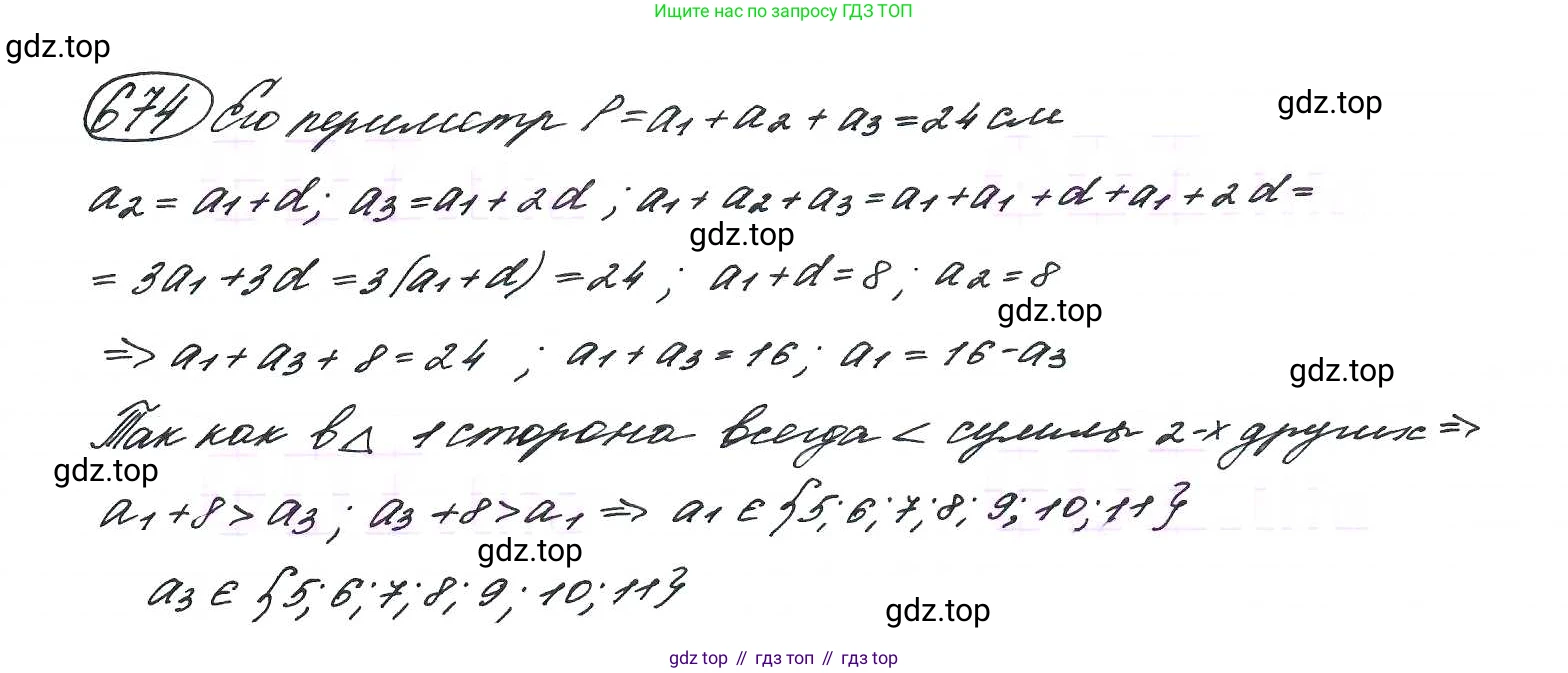 Ищите нас по запросу ГДЗ ТОП
gdz.top
674 Его периметр P = a₁ + a₂ + a₃ = 24 см
gdz.top
a₂ = a₁ + d; a₃ = a₁ + 2d ; a₁ + a₂ + a₃ = a₁ + a₁ + d + a₁ + 2d =
gdz.top
= 3a₁ + 3d = 3(a₁ + d) = 24 ; a₁ + d = 8 ; a₂ = 8
gdz.top
=> a₁ + a₃ + 8 = 24 ; a₁ + a₃ = 16; a₁ = 16 - a₃
gdz.top
Так как в △ 1 сторона всегда < суммы 2-х других =>
gdz.top
a₁ + 8 > a₃ ; a₃ + 8 > a₁ => a₁ ∈ {5; 6; 7; 8; 9; 10; 11}
gdz.top
a₃ ∈ {5; 6; 7; 8; 9; 10; 11}
gdz.top
gdz top // гдз топ // гдз top